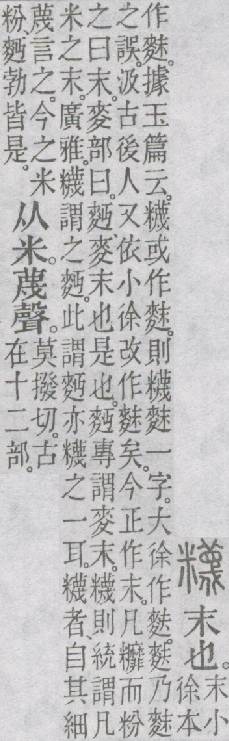 𥽘
末也。
末小
徐本
作䴲。據玉篇云。𥽘或作䴲。則𥽘䴲一字。大徐作麩。麩乃䴲
之誤。汲古後人又依小徐改作䴲矣。今正作末。凡䊳而粉
之曰末。麥部曰。麪、麥末也是也。麪專謂麥末。𥽘則統謂凡
米之末。廣雅。𥽘謂之麪。此謂麪亦𥽘之一耳。𥽘者、自其細
蔑言之。今之米
粉、麪勃皆是。
从米。蔑聲。
莫撥切。古
在十二部。